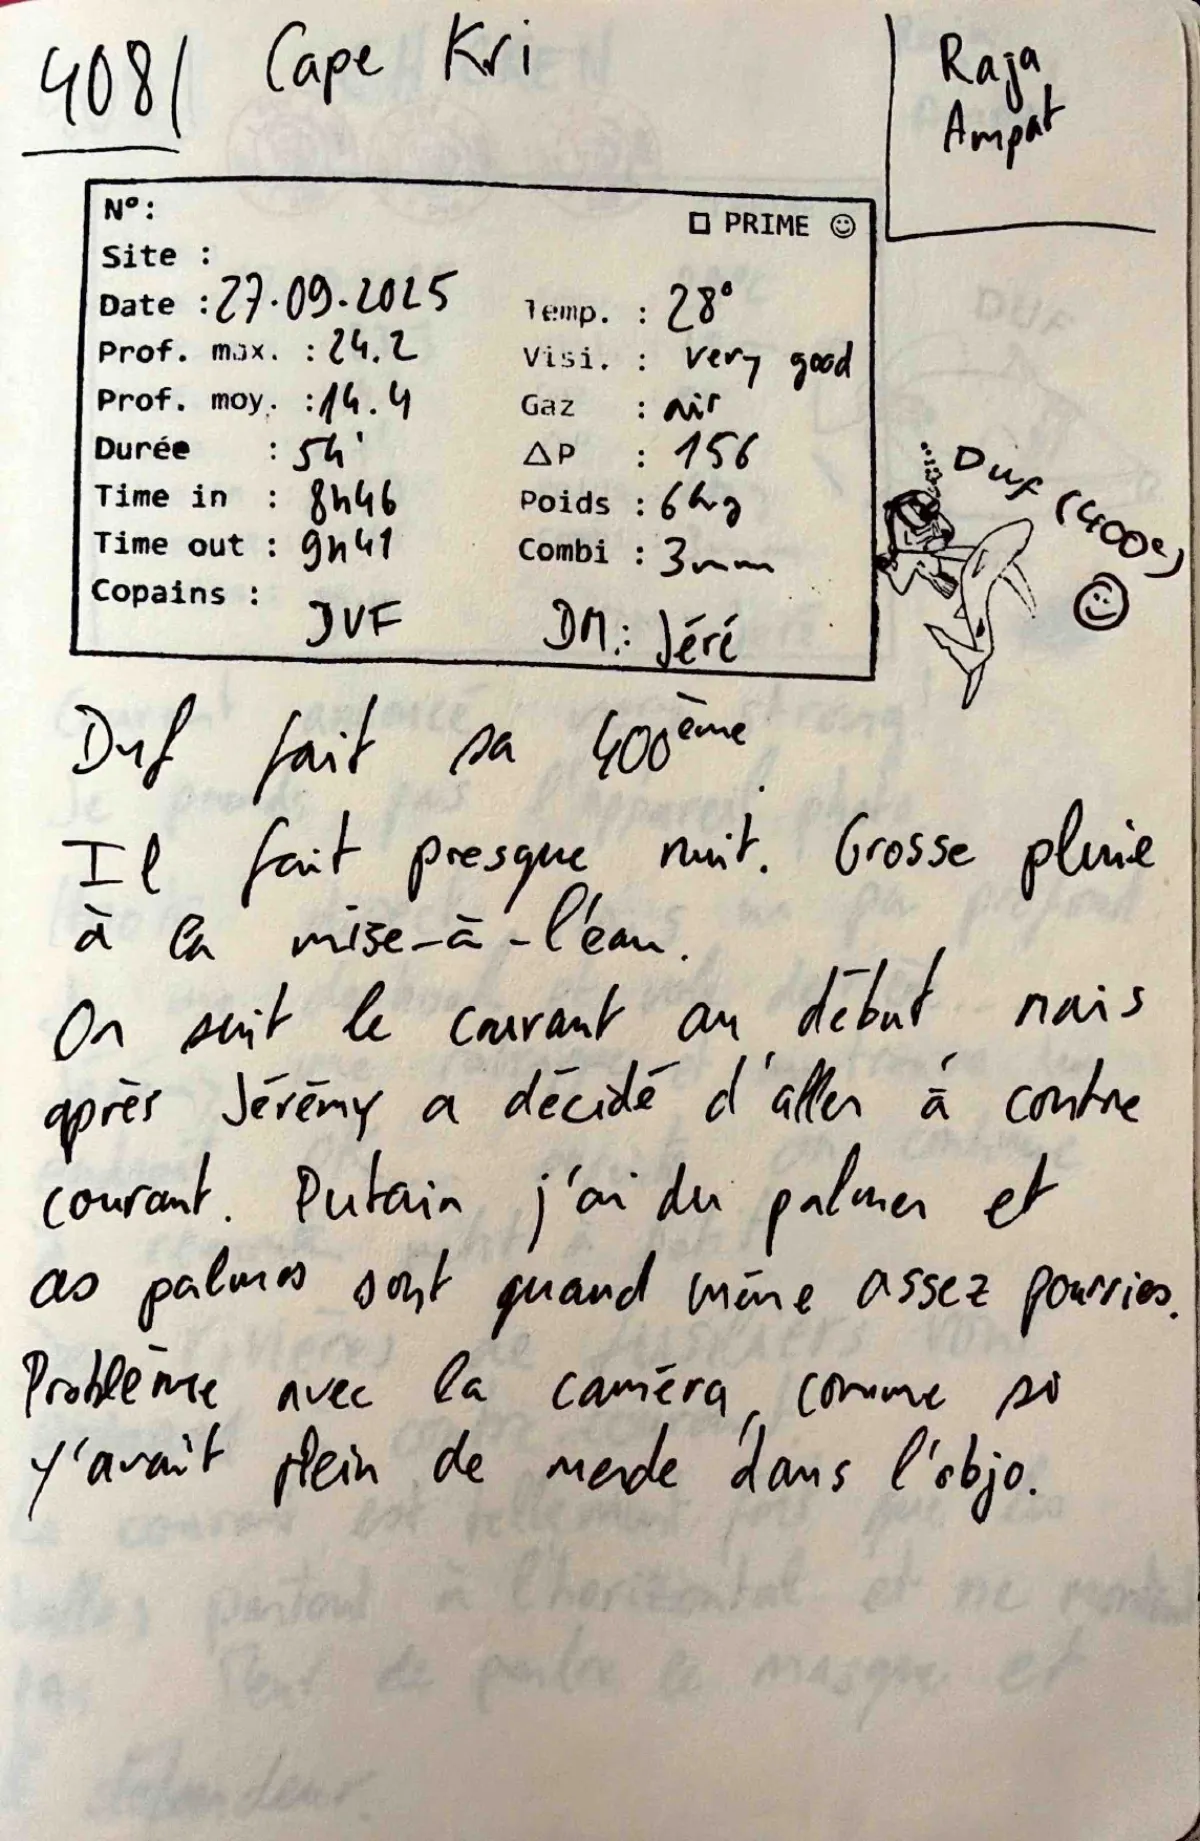 408/ Cape Kri
Raja
Ampat
N° :
□ PRIME ☺
Site :
Date : 27.09.2025
Temp. : 28°
Prof. max. : 24.2
Visi. : very good
Prof. moy. : 14.4
Gaz : air
Durée : 54'
ΔP : 156
Time in : 8h46
Poids : 6kg
Time out : 9h41
Combi : 3mm
Copains :
DUF
DM.: Jéré
Duf (400e)
Duf fait sa 400ème.
Il fait presque nuit. Grosse pluie
à la mise-à-l'eau.
On suit le courant au début mais
après Jérémy a décidé d'aller à contre
courant. Putain j'ai du palmer et
ces palmes sont quand même assez pourries.
Problème avec la caméra, comme si
y'avait plein de merde dans l'objo.